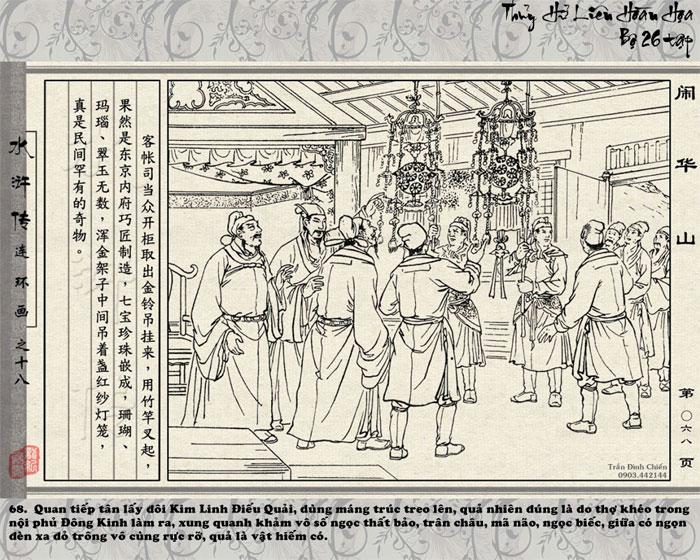 Thủy Hử Liên Hoàn Họa
Bộ 26 tập
闹华山
水浒传连环画之十八
客帐司当众开柜取出金铃吊挂来，用竹竿叉起，
果然是东京内府巧匠制造，七宝珍珠嵌成，珊瑚、
玛瑙、翠玉无数，浑金架子中间吊着盏红纱灯笼，
真是民间罕有的奇物。
第〇六八页
Trần Đình Chiến
0903.442144
68. Quan tiếp tân lấy đôi Kim Linh Điếu Quải, dùng máng trúc treo lên, quả nhiên đúng là do thợ khéo trong
nội phủ Đông Kinh làm ra, xung quanh khảm vô số ngọc thất bảo, trân châu, mã não, ngọc biếc, giữa có ngọn
đèn xa đỏ trông vô cùng rực rỡ, quả là vật hiếm có.